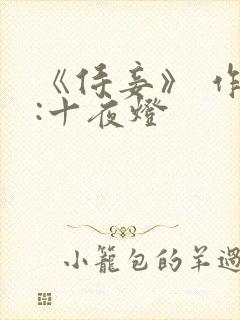 《侯妾》 作
:十夜燈
小籠包的羊過